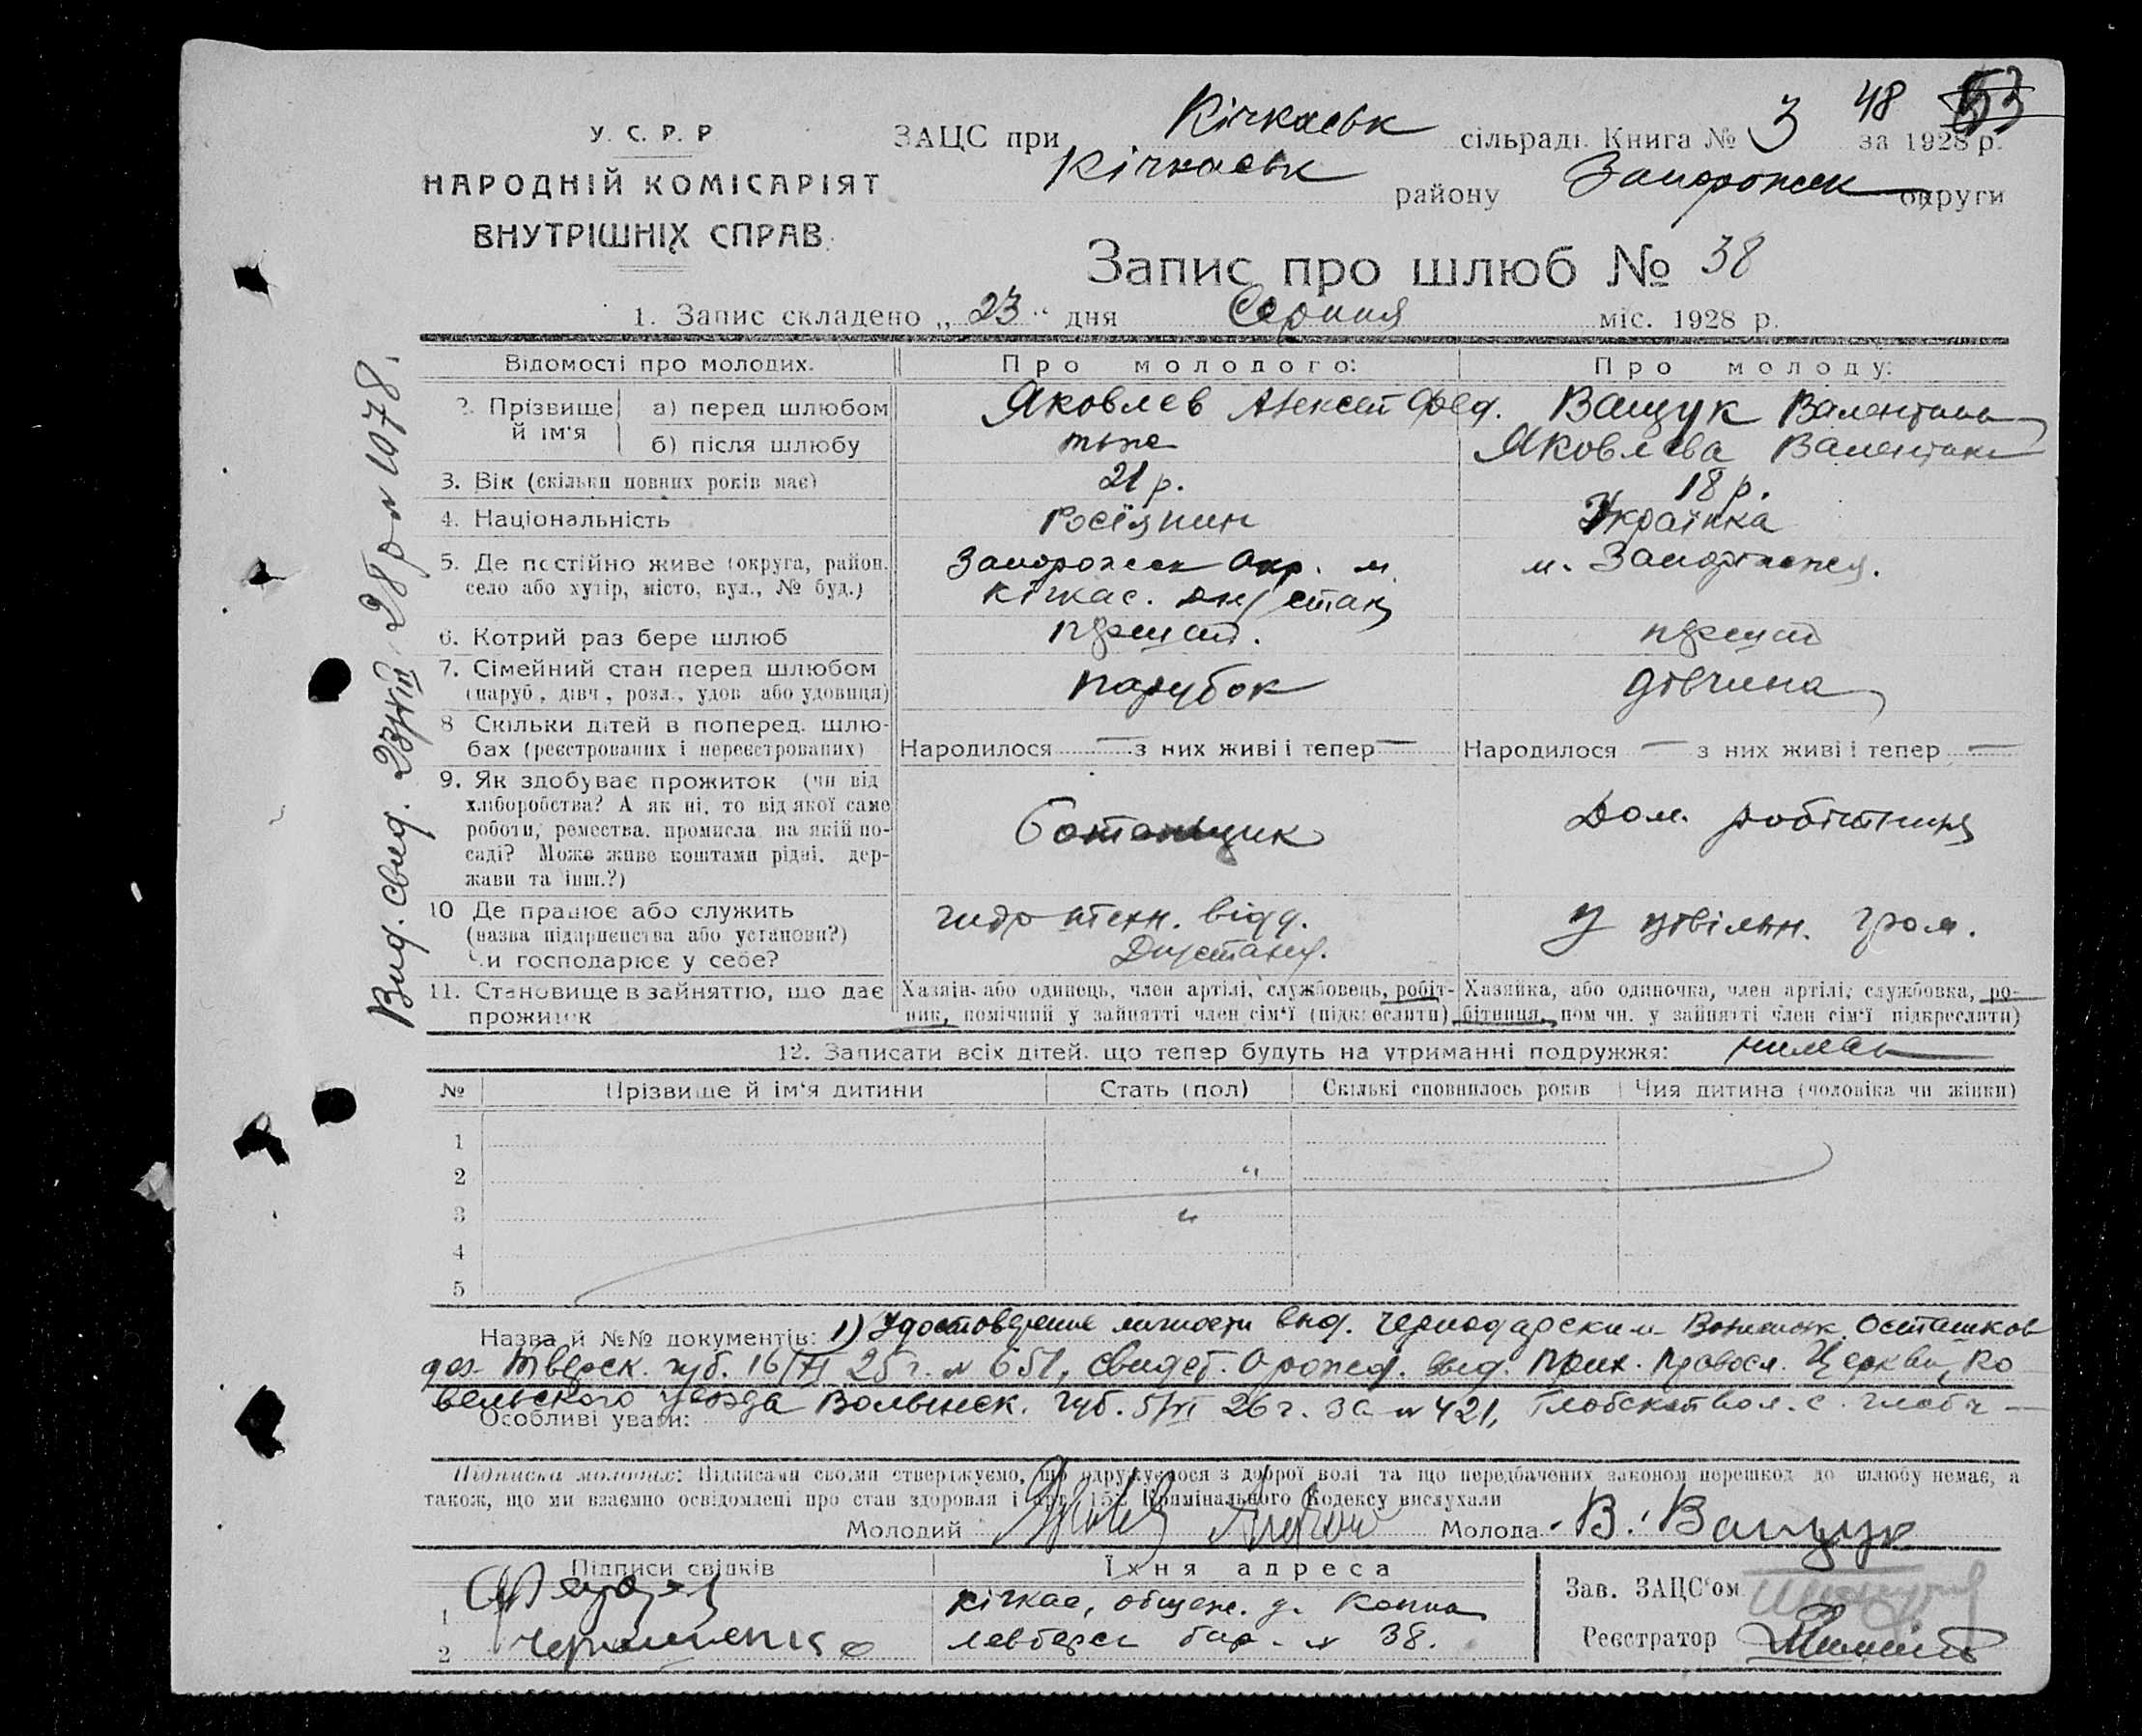 48 53
У. С. Р. Р
НАРОДНІЙ КОМІСАРІЯТ
ВНУТРІШНІХ СПРАВ
ЗАЦС при Кічкаськ сільраді. Книга № 3 за 1928 р.
Кічкаськ району Запорожск округи
Запис про шлюб № 38
1. Запис складено „ 23 " дня Серпня міс. 1928 р.
Відомості про молодих. Про молодого: Про молоду:
2. Прізвище й ім'я а) перед шлюбом Яковлев Алексей Фед. Ващук Валентина
б) після шлюбу тоже Яковлева Валентина
3. Вік (скільки повних років має) 21 р. 18 р.
4. Національність Росіянин Українка
5. Де постійно живе (округа, район, село або хутір, місто, вул., № буд.) Запорожск Окр. м. Кічкас. м. Запоріжжя.
6. Котрий раз бере шлюб перший. перший
7. Сімейний стан перед шлюбом (паруб., дівч., розл., удов. або удовиця) парубок дівчина
8 Скільки дітей в поперед. шлюбах (реєстрованих і нереєстрованих) Народилося — з них живі і тепер — Народилося — з них живі і тепер —
9. Як здобуває прожиток (чи від хліборобства? А як ні, то від якої саме роботи, ремества, промисла на якій посаді? Може живе коштами рідні, держави та інш.?) Дом. робітниця
10 Де працює або служить (назва підприємства або установи?) Чи господарює у себе? гидротехн. відд. У цівільн. гром.
11. Становище в зайняттю, що дає прожиток Хазяїн або одинець, член артілі, службовець, робітник, помічний у зайнятті член сім'ї (підкреслити) Хазяйка, або одиночка, член артілі, службовка, робітниця, пом чн. у зайнятті член сім'ї підкреслити)
12. Записати всіх дітей, що тепер будуть на утриманні подружжя: нимає
№ Прізвище й ім'я дитини Стать (пол) Скількі сповнилось років Чия дитина (чоловіка чи жінки)
1
2 "
3 "
4
5
Назва й №№ документів: 1) Удостоверение личности выд. Осташков
Тверск. губ. 16/VI 25 г. № 651, свидет. о рожд. выд. Прих. Правосл. Церкви, Ко
вельского уезда Волынск. губ. 5/VI 26 г. за № 421,
Особливі уваги:
Підписка молодих: Підписами своїми стверджуємо, що одружуємося з доброї волі та що передбачених законом перешкод до шлюбу немає, а
також, що ми взаємно освідомлені про стан здоровля і арт. 15 Кримінального Кодексу вислухали
Молодий Молода В. Ващук
Підписи свідків Їхня адреса
1 Кічкас, общеж.
2 Черниненко бар. № 38.
Зав. ЗАЦС'ом
Реєстратор
Выд. свид. 23/VIII 28 р. № 1078.